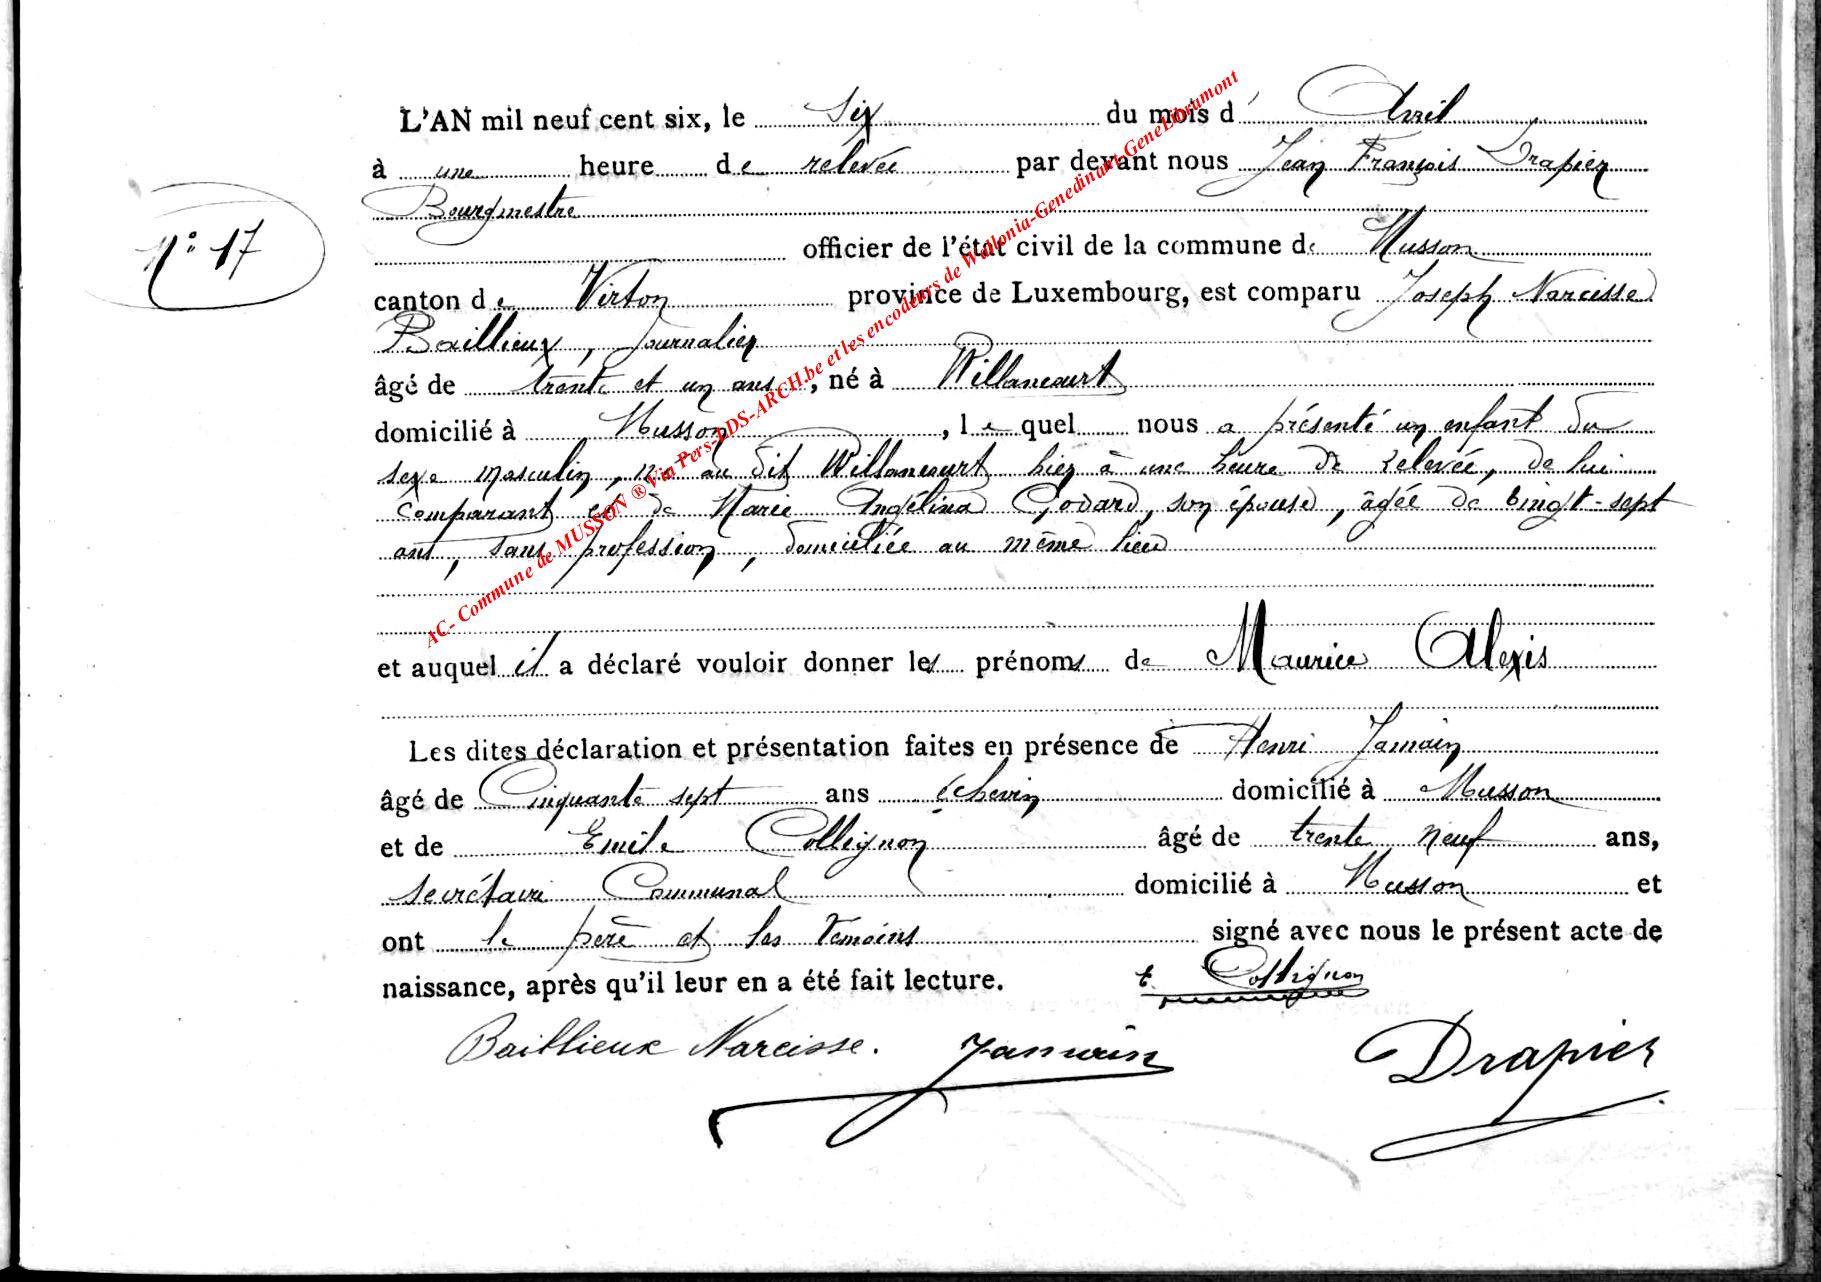 L'AN mil neuf cent six, le Six du mois d' Avril
à une heure de rélevée par devant nous Jean François Drapier
Bourgmestre
N° 17
officier de l'état civil de la commune de Musson
canton de Virton province de Luxembourg, est comparu Joseph Narcisse
Baillieux, Journalier
âgé de trente et un ans, né à Willancourt
domicilié à Musson, lequel nous a présenté un enfant du
sexe masculin, né au dit Willancourt hier à une heure de rélevée, de lui
comparant et de Marie Angélina Godard, son épouse, âgée de vingt-sept
ans, sans profession, domiciliée au même lieu
et auquel il a déclaré vouloir donner les prénoms de Maurice Alexis
Les dites déclaration et présentation faites en présence de Henri Jamain
âgé de Cinquante sept ans échevin domicilié à Musson
et de Emile Collignon âgé de trente neuf ans,
secrétaire Communal domicilié à Musson et
ont le père et les témoins signé avec nous le présent acte de
naissance, après qu'il leur en a été fait lecture. E. Collignon
Baillieux Narcisse. Jamain Drapier
AC- Commune de MUSSON ® Via Pers-LDS-ARCH.be et les encodeurs de Wallonia-Genedinant-GeneLibramont